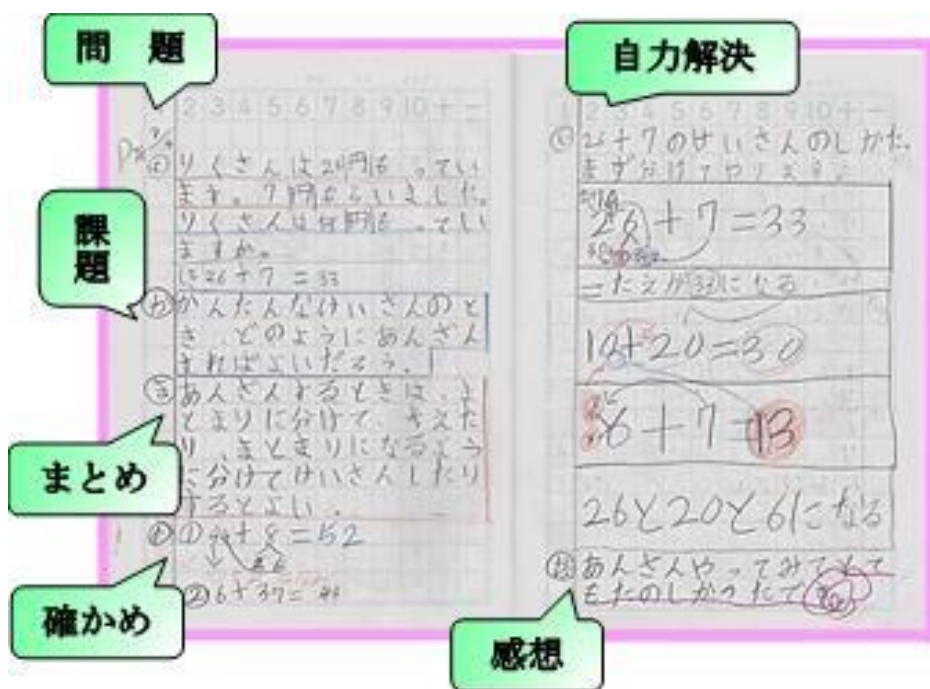 問 題
2 3 4 5 6 7 8 9 10 + −
りくさんは26円もってい
ます。7円もらいました。
りくさんは何円もってい
ますか。
26+7=33
課題
かんたんなけいさんのと
き、どのようにあんざん
すればよいだろう。
まとめ
あんざんするときは、ま
とまりに分けて、考えた
り、まとまりになるよう
に分けてけいさんしたり
するとよい。
確かめ
① +8=52
②6+37=
自力解決
1 2 3 4 5 6 7 8 9 10 + −
26+7のけいさんのしかた。
まず分けてやります。
26+7=33
こたえが33になる
10+20=30
6+7=13
26と20と6になる
感想
あんざんやってみてとて
もたのしかったで